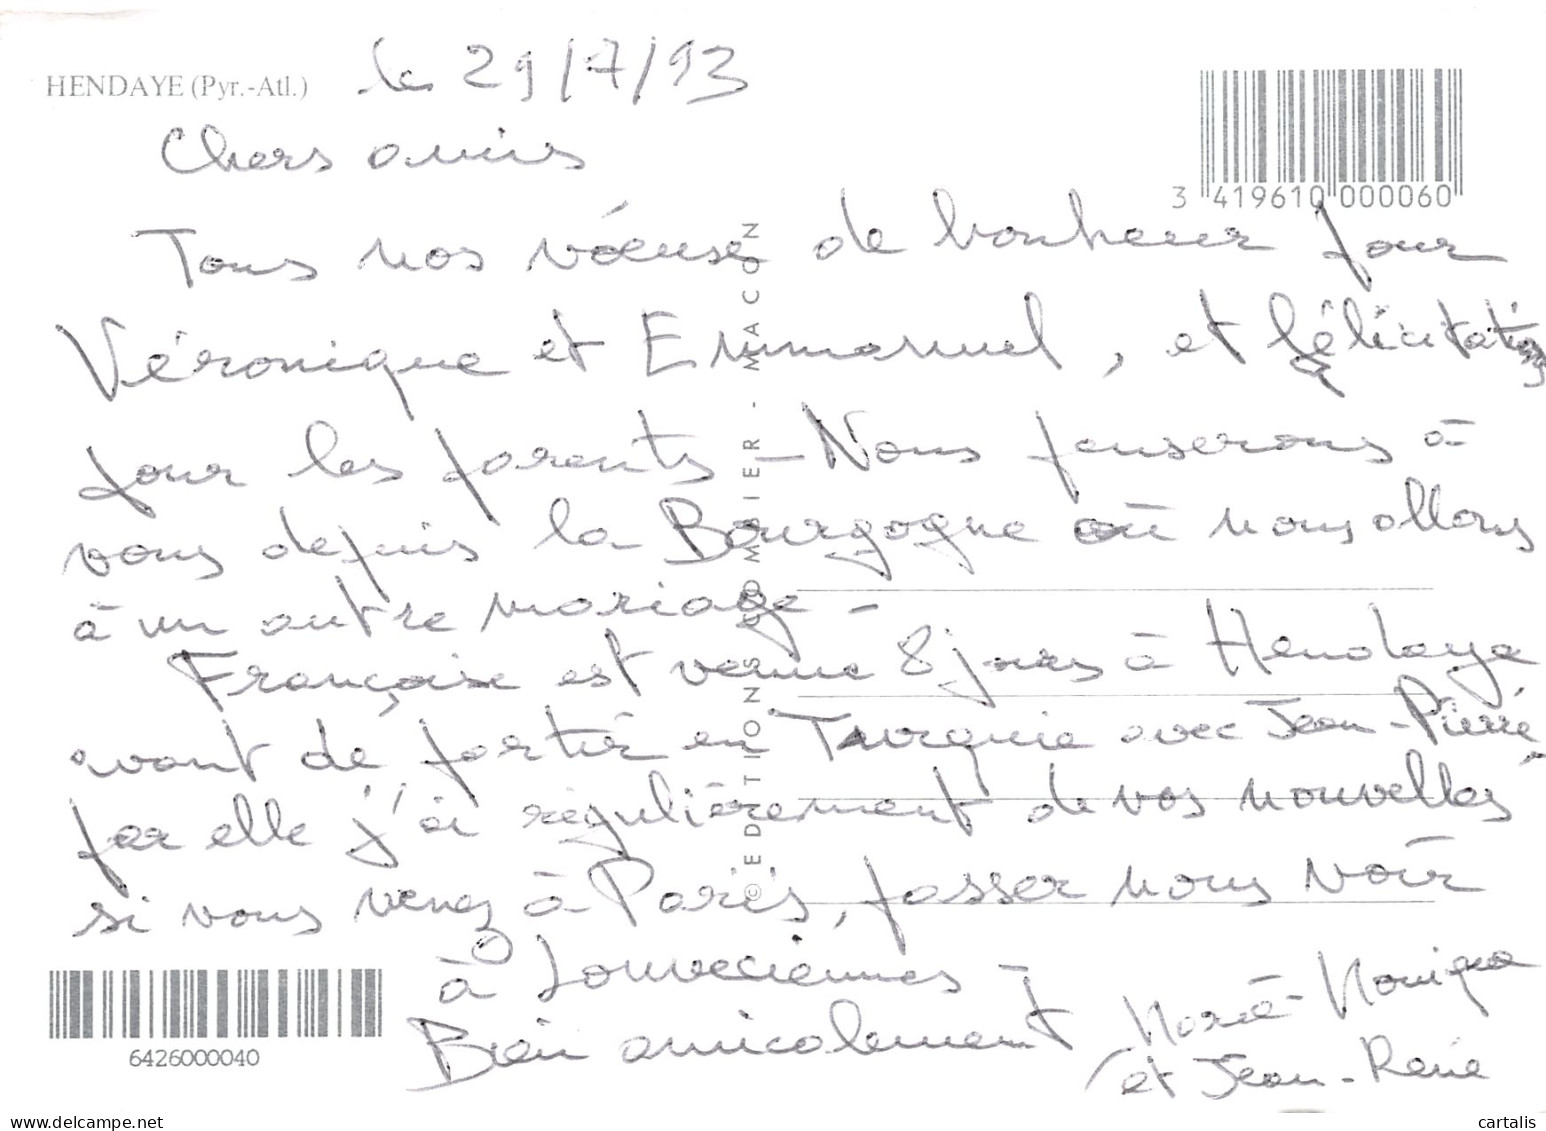 HENDAYE (Pyr.-Atl.)
le 29/7/93
Chers amis
3 419610 000060
Tous nos vœux de bonheur pour
Véronique et Emmanuel, et félicitations
pour les parents - Nous penserons à
vous depuis la Bourgogne où nous allons
à un autre mariage -
Françoise est venue 8 jours à Hendaye
avant de partir en Turquie avec Jean-Pierre
par elle j'ai régulièrement de vos nouvelles
si vous venez à Paris, passer nous voir
à Louveciennes -
Bien amicalement
Marie-Monique
et Jean-René
© EDITIONS COMBIER - MACON
6426000040
cartalis
delcampe.net